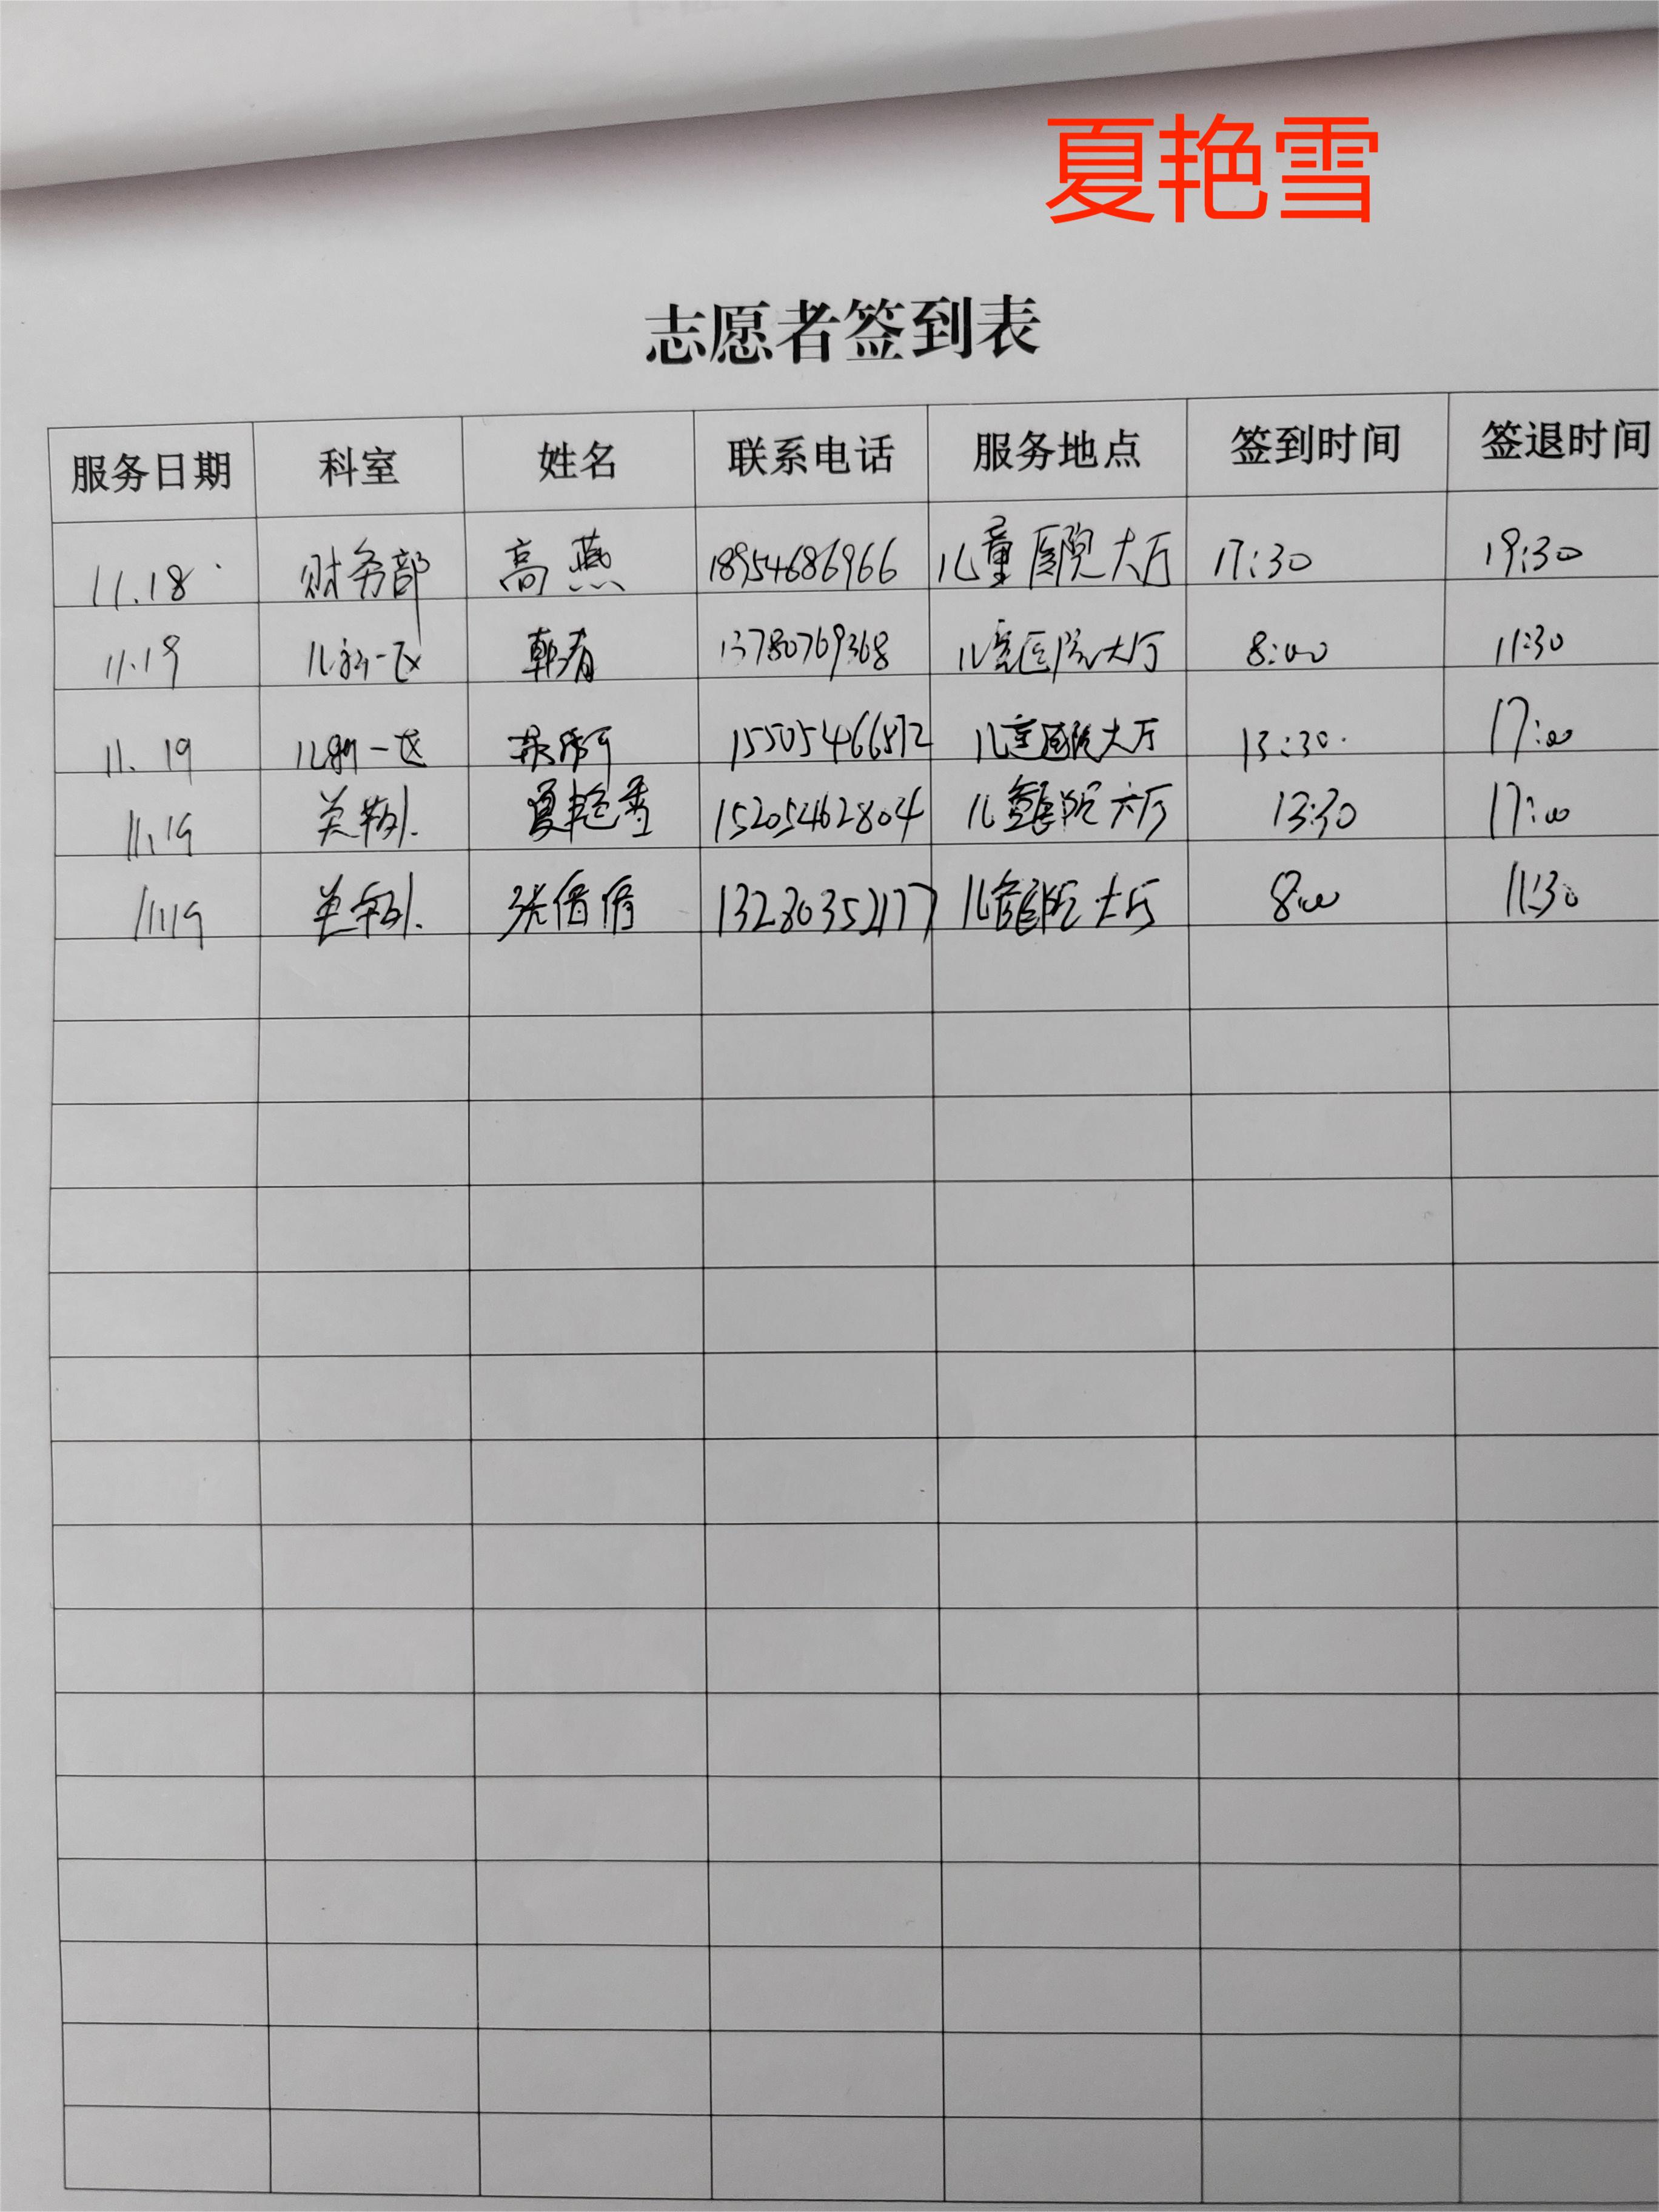 夏艳雪
志愿者签到表
服务日期 科室 姓名 联系电话 服务地点 签到时间 签退时间
11.18 财务部 高燕 18954686966 儿童医院大厅 17:30 19:30
11.19 儿新一区 韩春 13780769368 儿童医院大厅 8:00 11:30
11.19 儿新一区 15505466572 儿童医院大厅 13:30 17:00
11.19 夏艳雪 15205462804 儿童医院大厅 13:30 17:00
11.19 张倩倩 13280352177 儿童医院大厅 8:00 11:30